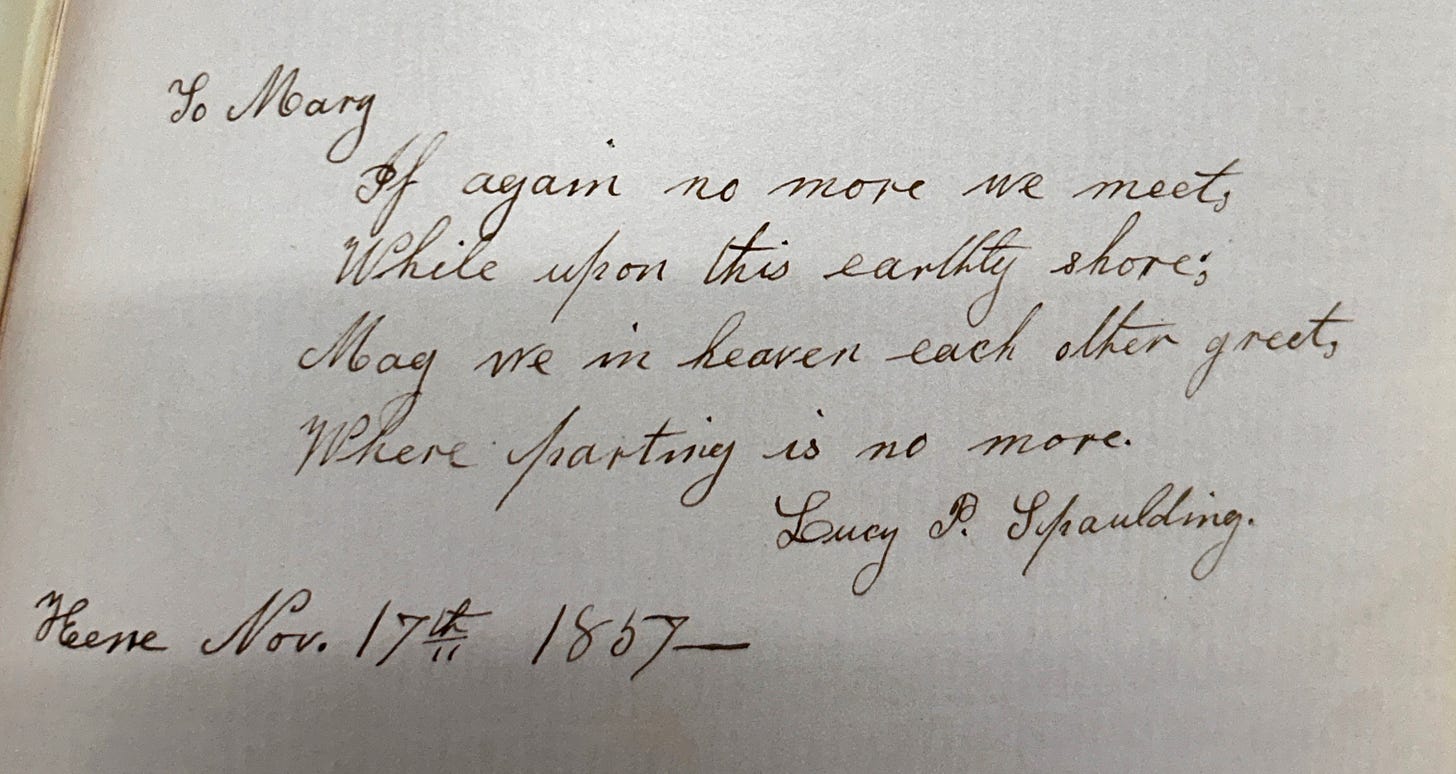 To Mary
If again no more we meet,
While upon this earthly shore;
May we in heaven each other greet,
Where parting is no more.
Lucy P. Spaulding.
Nov. 17th 1857—